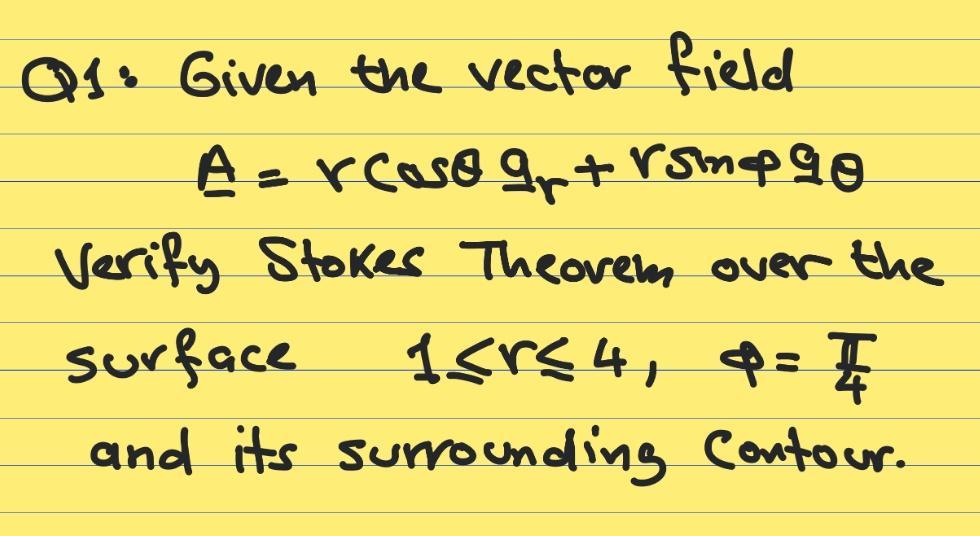 Q1: Given the vector field
A = r cosθ a_r + r sinφ a_θ
Verify Stokes Theorem over the
surface 1≤r≤4, φ = π/4
and its surrounding contour.